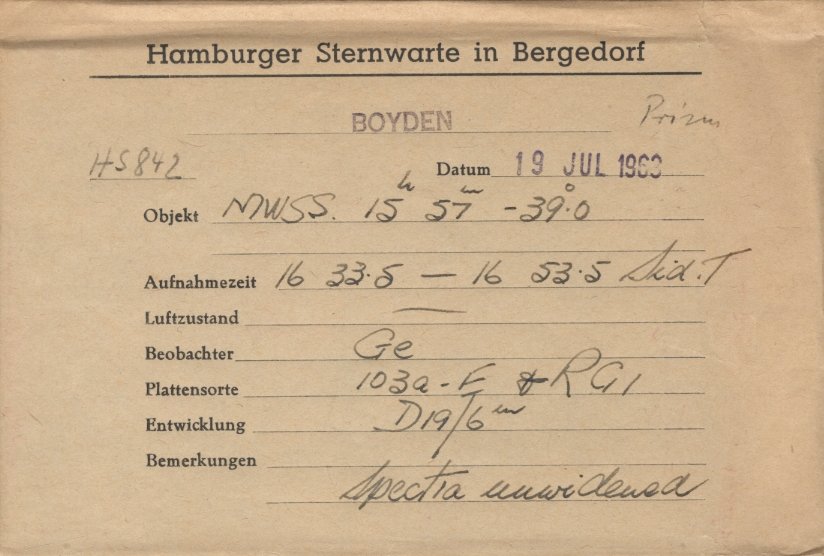 Hamburger Sternwarte in Bergedorf
BOYDEN Prism
HS842 Datum 19 JUL 1963
Objekt MWSS. 15h 57m -39°.0
Aufnahmezeit 16 33.5 — 16 53.5 Sid.T
Luftzustand —
Beobachter Ge
Plattensorte 103a-F & RG1
Entwicklung D19/6m
Bemerkungen
Spectra unwidened